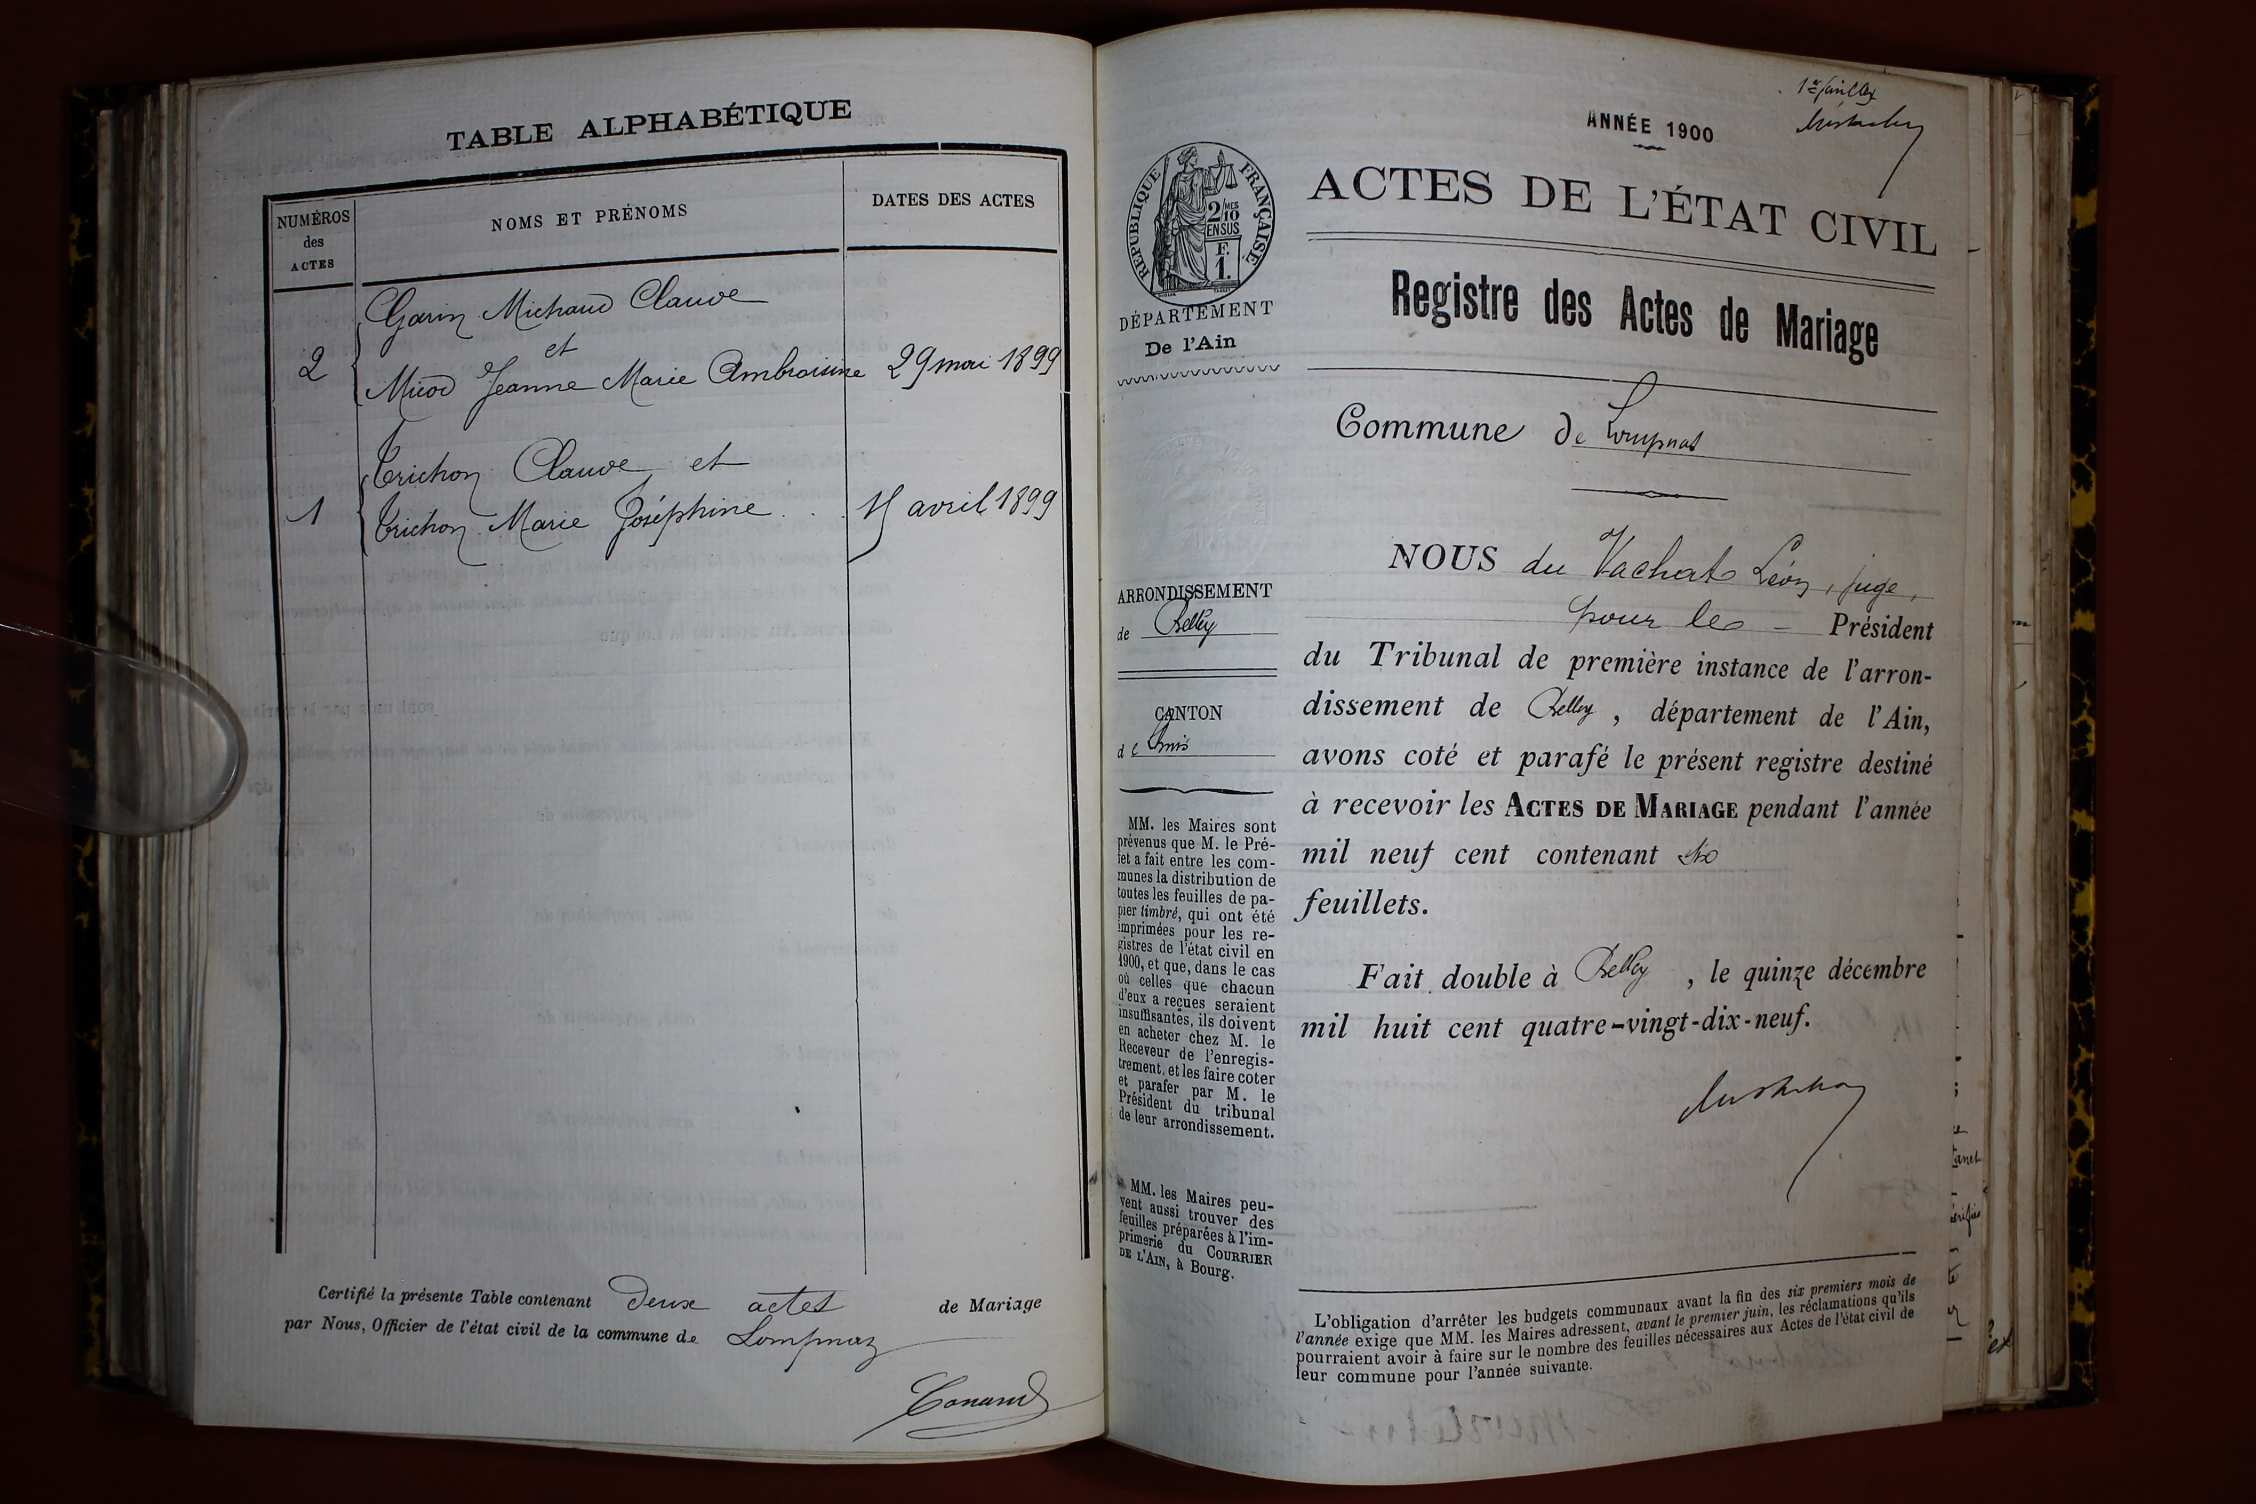 TABLE ALPHABÉTIQUE
NUMÉROS
des
ACTES
NOMS ET PRÉNOMS
DATES DES ACTES
Garin Michaud Claude
et
2
Micod Jeanne Marie Ambroisine 29 mai 1899
Trichon Claude et
1
Trichon Marie Joséphine . . 15 avril 1899
Certifié la présente Table contenant deux actes de Mariage
par Nous, Officier de l'état civil de la commune de Lompnaz
Conand
1er feuillet
ANNÉE 1900
RÉPUBLIQUE FRANÇAISE
2/10MES
EN SUS
F.
1.
DÉPARTEMENT
De l'Ain
ARRONDISSEMENT
de Belley
CANTON
de
MM. les Maires sont
prévenus que M. le Pré-
fet a fait entre les com-
munes la distribution de
toutes les feuilles de pa-
pier timbré, qui ont été
imprimées pour les re-
gistres de l'état civil en
1900, et que, dans le cas
où celles que chacun
d'eux a reçues seraient
insuffisantes, ils doivent
en acheter chez M. le
Receveur de l'enregis-
trement, et les faire coter
et parafer par M. le
Président du tribunal
de leur arrondissement.
MM. les Maires peu-
vent aussi trouver des
feuilles préparées à l'im-
primerie du COURRIER
DE L'AIN, à Bourg.
ACTES DE L'ÉTAT CIVIL
Registre des Actes de Mariage
Commune de Lompnas
NOUS du Vachat Léon, juge,
pour le Président
du Tribunal de première instance de l'arron-
dissement de Belley, département de l'Ain,
avons coté et parafé le présent registre destiné
à recevoir les ACTES DE MARIAGE pendant l'année
mil neuf cent contenant six
feuillets.
Fait double à Belley, le quinze décembre
mil huit cent quatre-vingt-dix-neuf.
L'obligation d'arrêter les budgets communaux avant la fin des six premiers mois de
l'année exige que MM. les Maires adressent, avant le premier juin, les réclamations qu'ils
pourraient avoir à faire sur le nombre des feuilles nécessaires aux Actes de l'état civil de
leur commune pour l'année suivante.